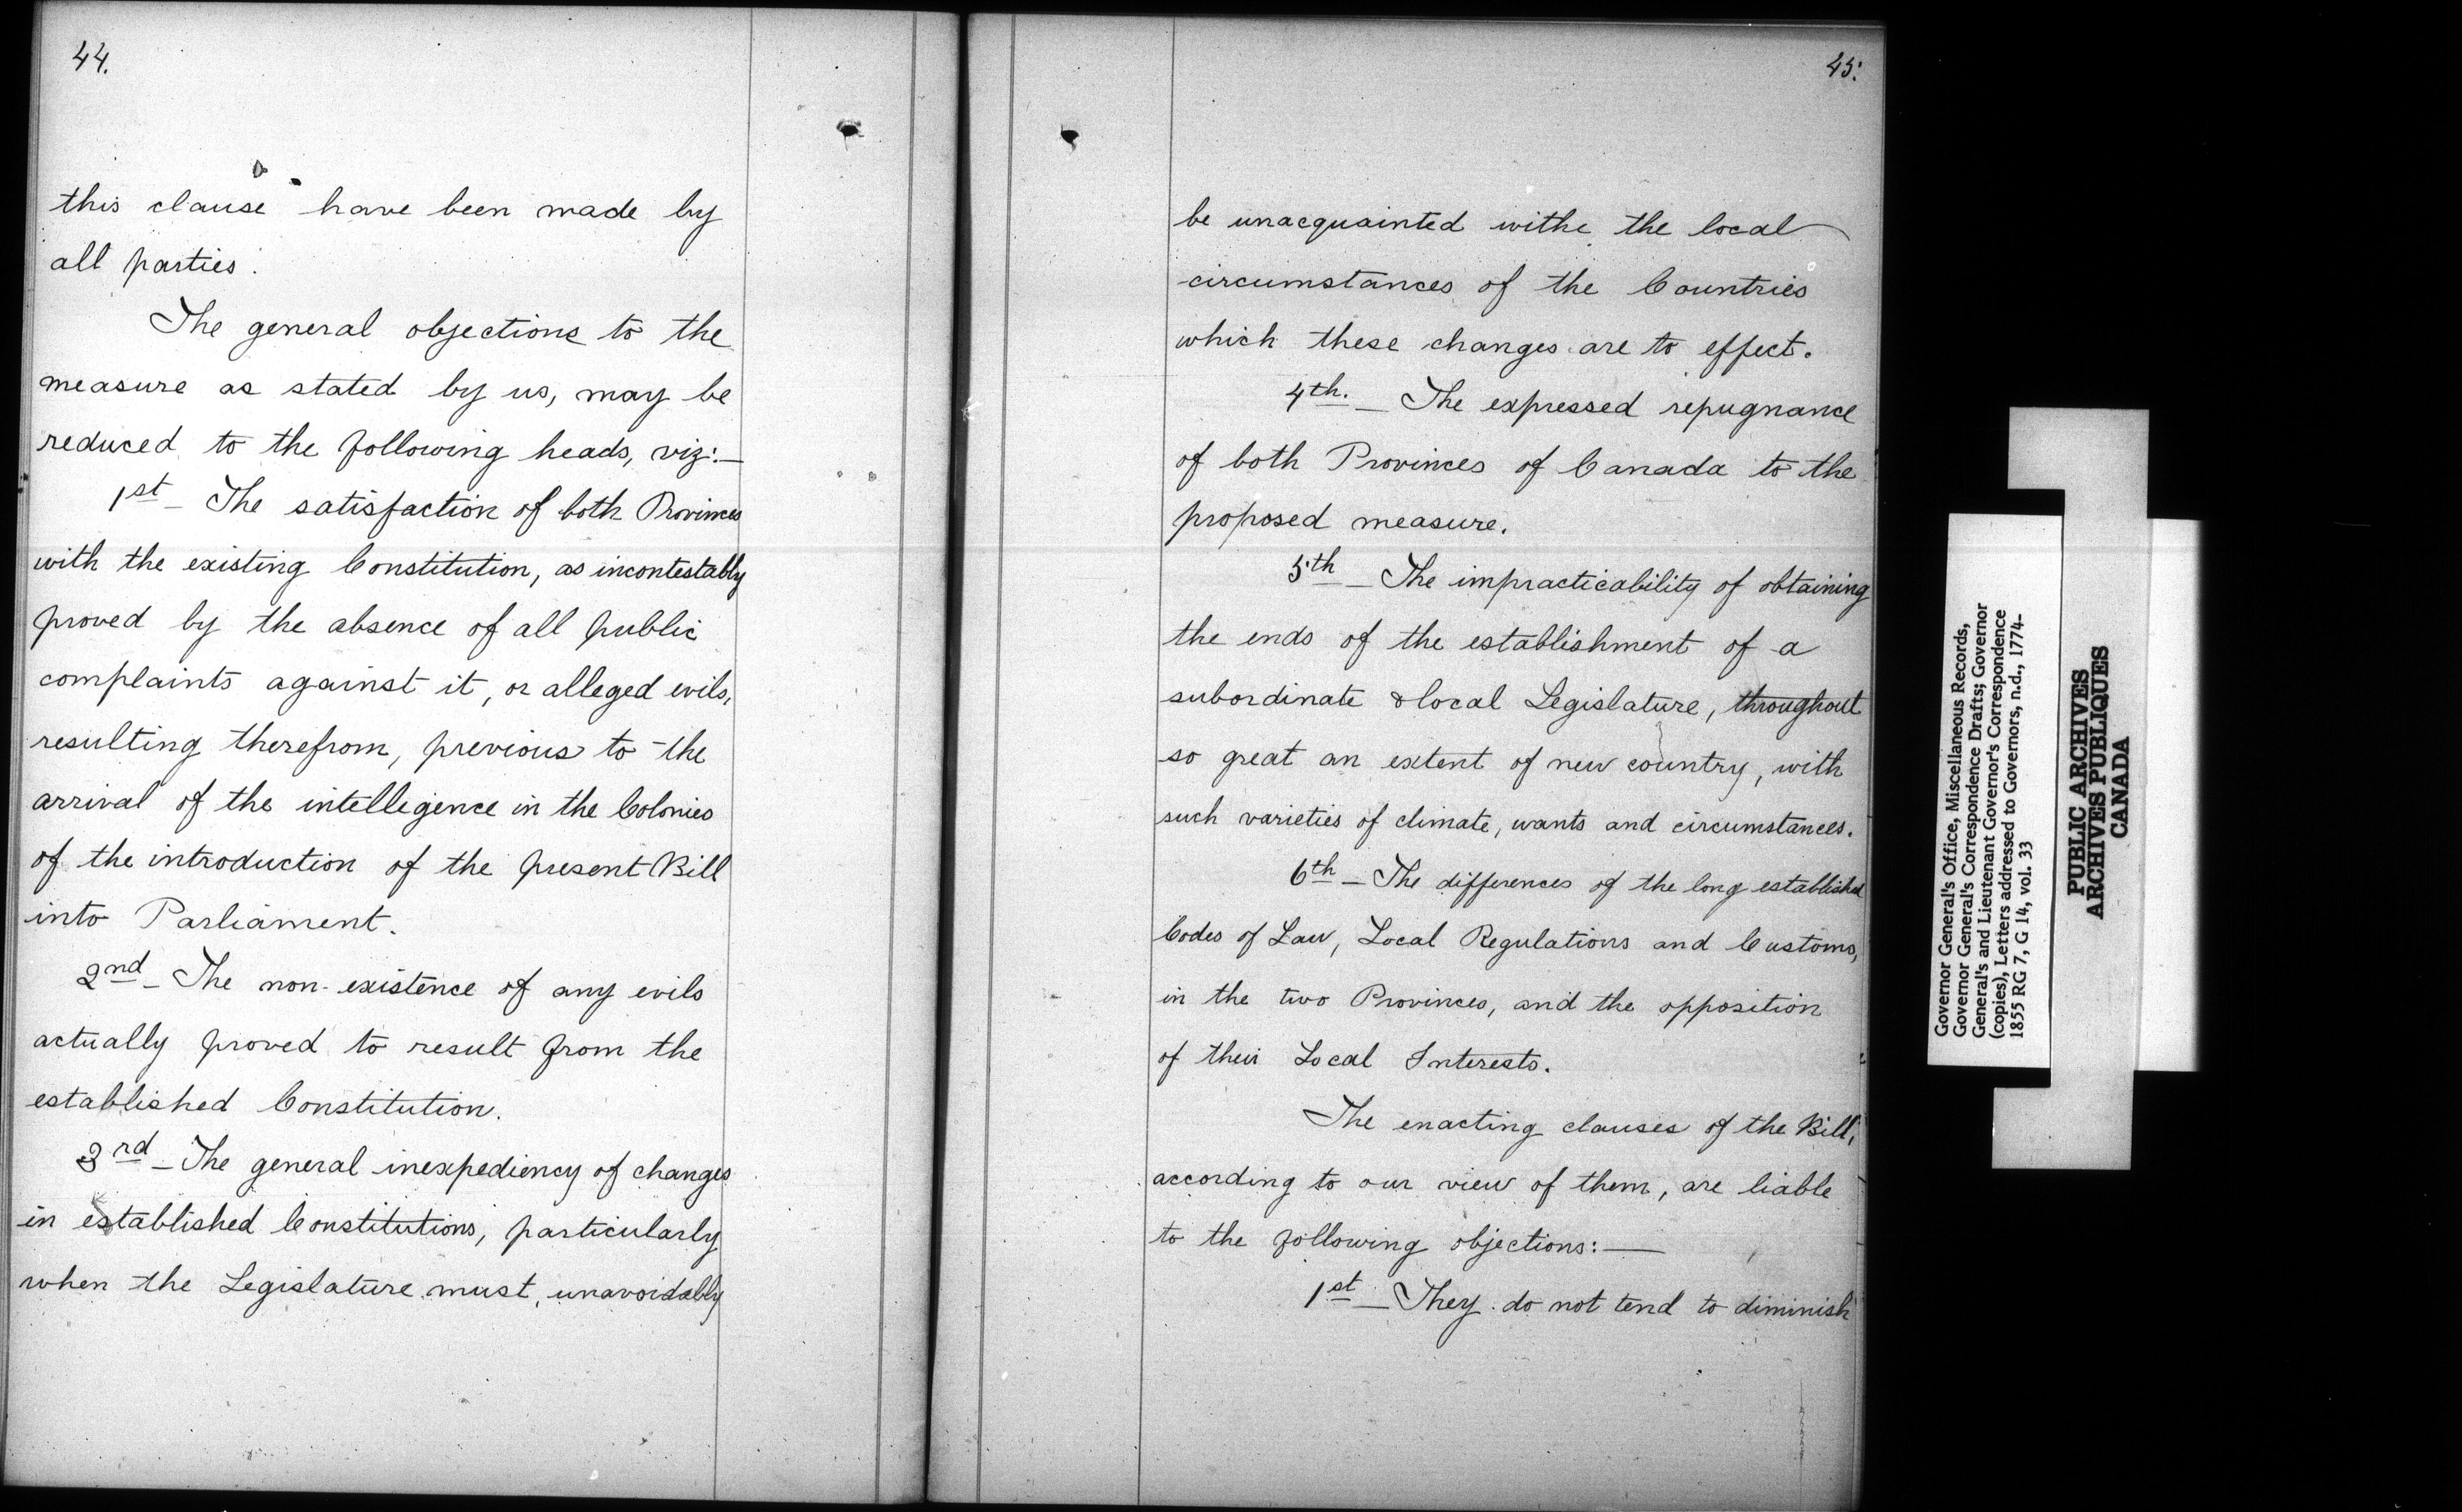 44.
this clause have been made by
all parties.
The general objections to the
measure as stated by us, may be
reduced to the following heads, viz:—
1st – The satisfaction of both Provinces
with the existing Constitution, as incontestably
proved by the absence of all public
complaints against it, or alleged evils,
resulting therefrom, previous to the
arrival of the intellegence in the Colonies
of the introduction of the present Bill
into Parliament.
2nd – The non-existence of any evils
actually proved to result from the
established Constitution.
3rd – The general inexpediency of changes
in established Constitutions, particularly
when the Legislature must, unavoidably
45.
be unacquainted withe the local
circumstances of the Countries
which these changes are to effect.
4th. – The expressed repugnance
of both Provinces of Canada to the
proposed measure.
5th – The impracticability of obtaining
the ends of the establishment of a
subordinate & local Legislature, throughout
so great an extent of new country, with
such varieties of climate, wants and circumstances.
6th – The differences of the long established
Codes of Law, Local Regulations and Customs,
in the two Provinces, and the opposition
of their Local Interests.
The enacting clauses of the Bill,
according to our view of them, are liable
to the following objections:—
1st – They do not tend to diminish
Governor General's Office, Miscellaneous Records,
Governor General's Correspondence Drafts; Governor
General's and Lieutenant Governor's Correspondence
(copies), Letters addressed to Governors, n.d., 1774-
1855 RG 7, G 14, vol. 33
PUBLIC ARCHIVES
ARCHIVES PUBLIQUES
CANADA